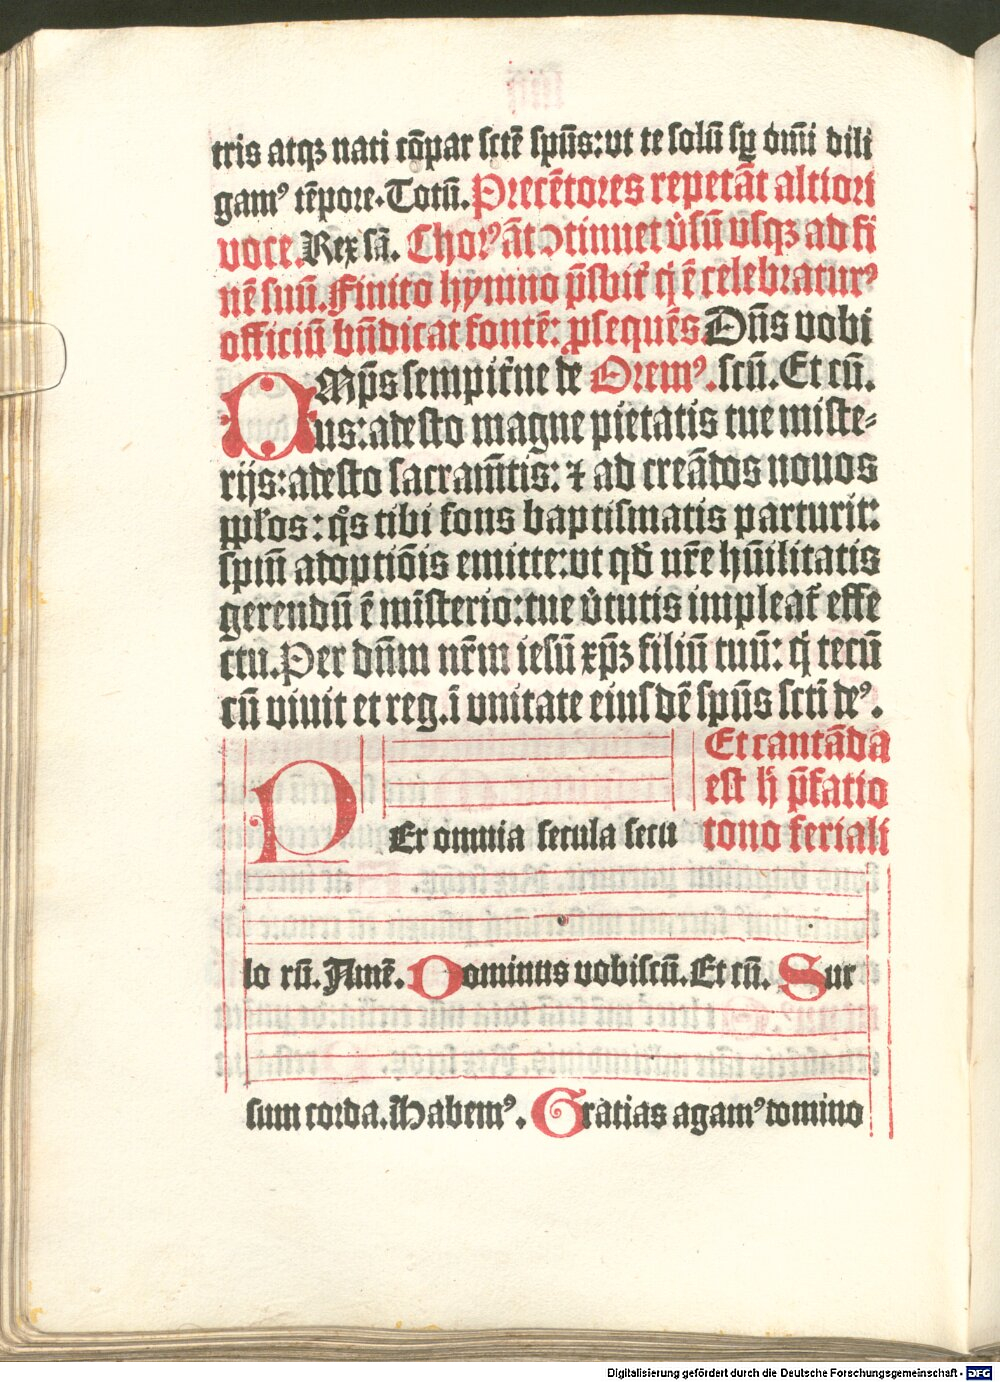 tris atqꝫ nati cōpar sctē spūs: vt te solū sꝑ dnūi dili
gamꝰ tēpore. Totū. Precētores repetāt altiori
voce. Rex sā. Chorꝰ āt ↄtinuet v̉sū vsqꝫ ad fi
nē suū. Finito hymno p̄sbit̉ q̇ ē celebraturꝰ
officiū bn̄dicat fontē: ꝓsequēs. Dn̄s vobi
OMp̄s sempit̉ne de Oremꝰ. scū. Et cū.
us: adesto magne pietatis tue miste-
rijs: adesto sacramētis: ⁊ ad creādos nouos
pplos: q̊s tibi fons baptismatis parturit:
spm̄ adoptiōis emitte: vt qd̄ nr̄e hūilitatis
gerendū ē mīsterio: tue v̉tutis impleat̉ effe
ctu. Per dn̄m nr̄m iesū xp̄ꝫ filiū tuū: q̇ tecū
cū viuit et reg. ī vnitate eiusdē spūs scti deꝰ.
Et cantāda
est h̄ p̄fatio
PEr omnia secula secu tono feriali
lo rū. Amē. Dominus vobiscū. Et cū. Sur
sum corda. Habemꝰ. Gratias agamꝰ domino
Digitalisierung gefördert durch die Deutsche Forschungsgemeinschaft - DFG